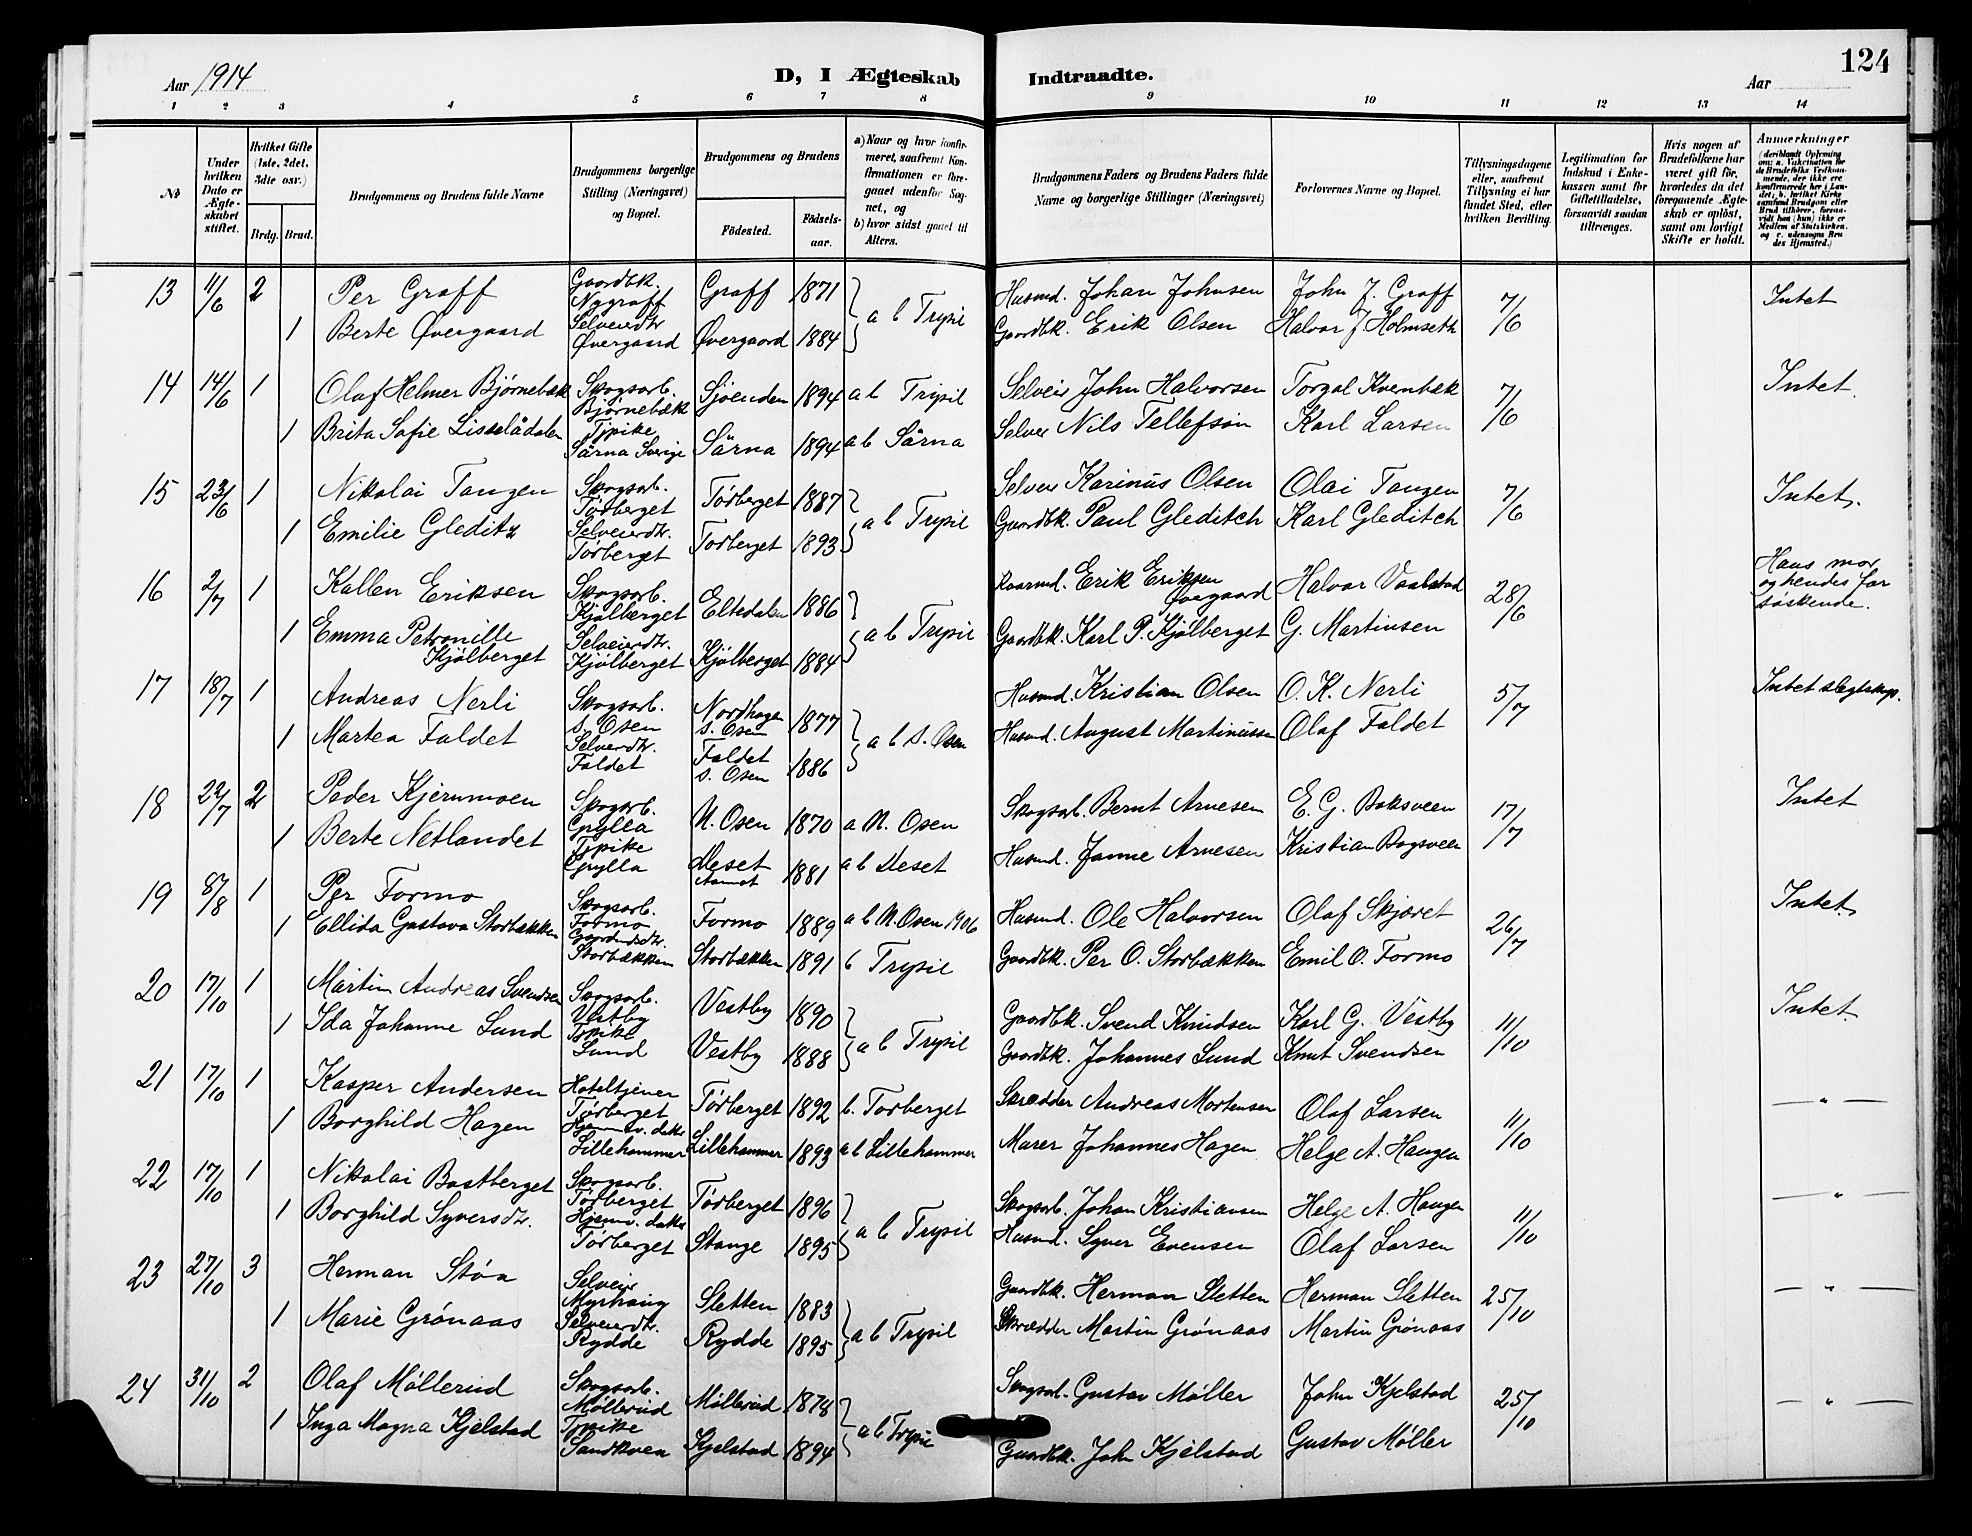 124
Aar 1914
D, I Ægteskab Indtraadte.
Aar
1 2 3 4 5 6 7 8 9 10 11 12 13 14
No
Under hvilken Dato er Ægteskabet stiftet.
Hvilket Gifte (1ste, 2det, 3die osv.)
Brdg. Brud.
Brudgommens og Brudens fulde Navne
Brudgommens borgerlige Stilling (Næringsvei) og Bopæl.
Brudgommens og Brudens
Fødested. Fødselsaar.
a) Naar og hvor konfirmeret, saafremt Konfirmationen er foregaaet udenfor Sognet, og
b) hvor sidst gaaet til Alters.
Brudgommens Faders og Brudens Faders fulde Navne og borgerlige Stillinger (Næringsvei)
Forlovernes Navne og Bopæl.
Tillysningsdagene eller, saafremt Tillysning ei har fundet Sted, efter hvilken Bevilling.
Legitimation for Indskud i Enkekassen samt for Giftetilladelse, forsaavidt saadan tiltrænges.
Hvis nogen af Brudefolkene har været gift før, hvorledes da det foregaaende Ægteskab er opløst, samt om lovligt Skifte er holdt.
Anmærkninger
(deriblandt Oplysning om: a. Vakcination for de Brudefolks Vedkommende, der ikke ere konfirmerede her i Landet; b. hvilket Kirkesamfund Brudgom eller Brud tilhører, forsaavidt han (hun) ikke er Medlem af Statskirken, og c. udensogns Brudes Hjemsted.)
13 11/6 2 Per Graff Gaardbk. Nygraff Graff 1871 a b Trysil Husmd. Johan Johnsen John J. Graff 7/6 Intet
1 Berte Øvergaard Selveierdtr Øvergaard Øvergaard 1884 Gaardbk. Erik Olsen Halvar J Holmseth
14 14/6 1 Olaf Helmer Bjørnebæk Skogsarb. Bjørnebæk Sjøenden 1894 a b Trysil Selveier John Halvorsen Torgal Kvernbæk 7/6 Intet.
1 Brita Sofie Lisslådalen Tpike Särna Sverige Särna 1894 a b Särna Selveier Nils Tellefson Karl Larsen
15 23/6 1 Nikolai Tangen Skogsarb. Tørberget Tørberget 1887 a b Trysil Selveier Karinus Olsen Olai Tangen 7/6 Intet.
1 Emilie Gleditz Selveierdtr. Tørberget Tørberget 1893 Gaardbk. Paul Gleditch Karl Gleditch
16 2/7 1 Kallen Eriksen Skogsarb. Kjølberget Eltedalen 1886 a b Trysil Erik Eriksen Øvergaard Halvar Vaalstad 28/6 Hans mor og hendes far søskende.
1 Emma Petronille Kjølberget Selveierdtr. Kjølberget Kjølberget 1884 Gaardbk. Karl P. Kjølberget G. Martinsen
17 18/7 1 Andreas Nerli Skogsarb. S. Osen Nordhagen S. Osen 1877 a b S. Osen Husmd. Kristian Olsen O. K. Nerli 5/7 Intet slegtskap.
1 Martea Faldet Selveierdtr. Faldet Faldet S. Osen 1886 Husmd. August Martinussen Olaf Faldet
18 22/7 2 Peder Kjernmoen Skogsarb. Gnylla N. Osen 1870 a N. Osen Skogsarb. Bernt Arnesen E. G. Baksveen 17/7 Intet
1 Berte Netlandet Tpike Gnylla Deset Aamot 1881 a b Deset Husmd. Janne Arnesen Kristian Bogsveen
19 8/8 1 Per Formo Skogsarb. Formo Formo 1889 a b N. Osen 1906 Husmd. Ole Halvorsen Olaf Skjæret 26/7 Intet.
1 Ellida Gustava Storbækken Storbækken Storbækken 1891 b Trysil Gaardbk. Per O. Storbækken Emil O. Formo
20 17/10 1 Martin Andreas Svendsen Skogsarb. Vestby Vestby 1890 a b Trysil Gaardbk. Svend Knudsen Karl G. Vestby 11/10 Intet.
1 Ida Johanne Lund Tpike Lund Vestby 1888 Gaardbk. Johannes Lund Knut Svendsen
21 17/10 1 Kasper Andersen Hoteltjener Tørberget Tørberget 1892 b. Tørberget Skrædder Andreas Mortensen Olaf Larsen 11/10 — " —
1 Borghild Hagen Hjemv. datter Lillehammer Lillehammer 1893 a b Lillehammer Murer Johannes Hagen Helge A. Haugen
22 17/10 1 Nikolai Bastberget Skogsarb. Tørberget Tørberget 1896 a b Trysil Skogsarb. Johan Kristiansen Helge A. Haugen 11/10 — " —
1 Borghild Syversdtr. Hjemv. datter Tørberget Stange 1895 Husmd. Syver Evensen Olaf Larsen
23 27/10 3 Herman Støa Selveier Myrhaug Sletten 1883 a b Trysil Gaardbk. Herman Sletten Herman Sletten 25/10 — " —
1 Marie Grønaas Selveierdtr. Rydde Rydde 1895 Skrædder Martin Grønaas Martin Grønaas
24 31/10 2 Olaf Møllerud Skogsarb. Møllerud Møllerud 1878 a b Trysil Skogsarb. Gustav Møller John Kjelstad 25/10 — " —
1 Inga Magna Kjelstad Tpike Sandkveen Kjelstad 1894 Gaardbk. John Kjelstad Gustav Møller